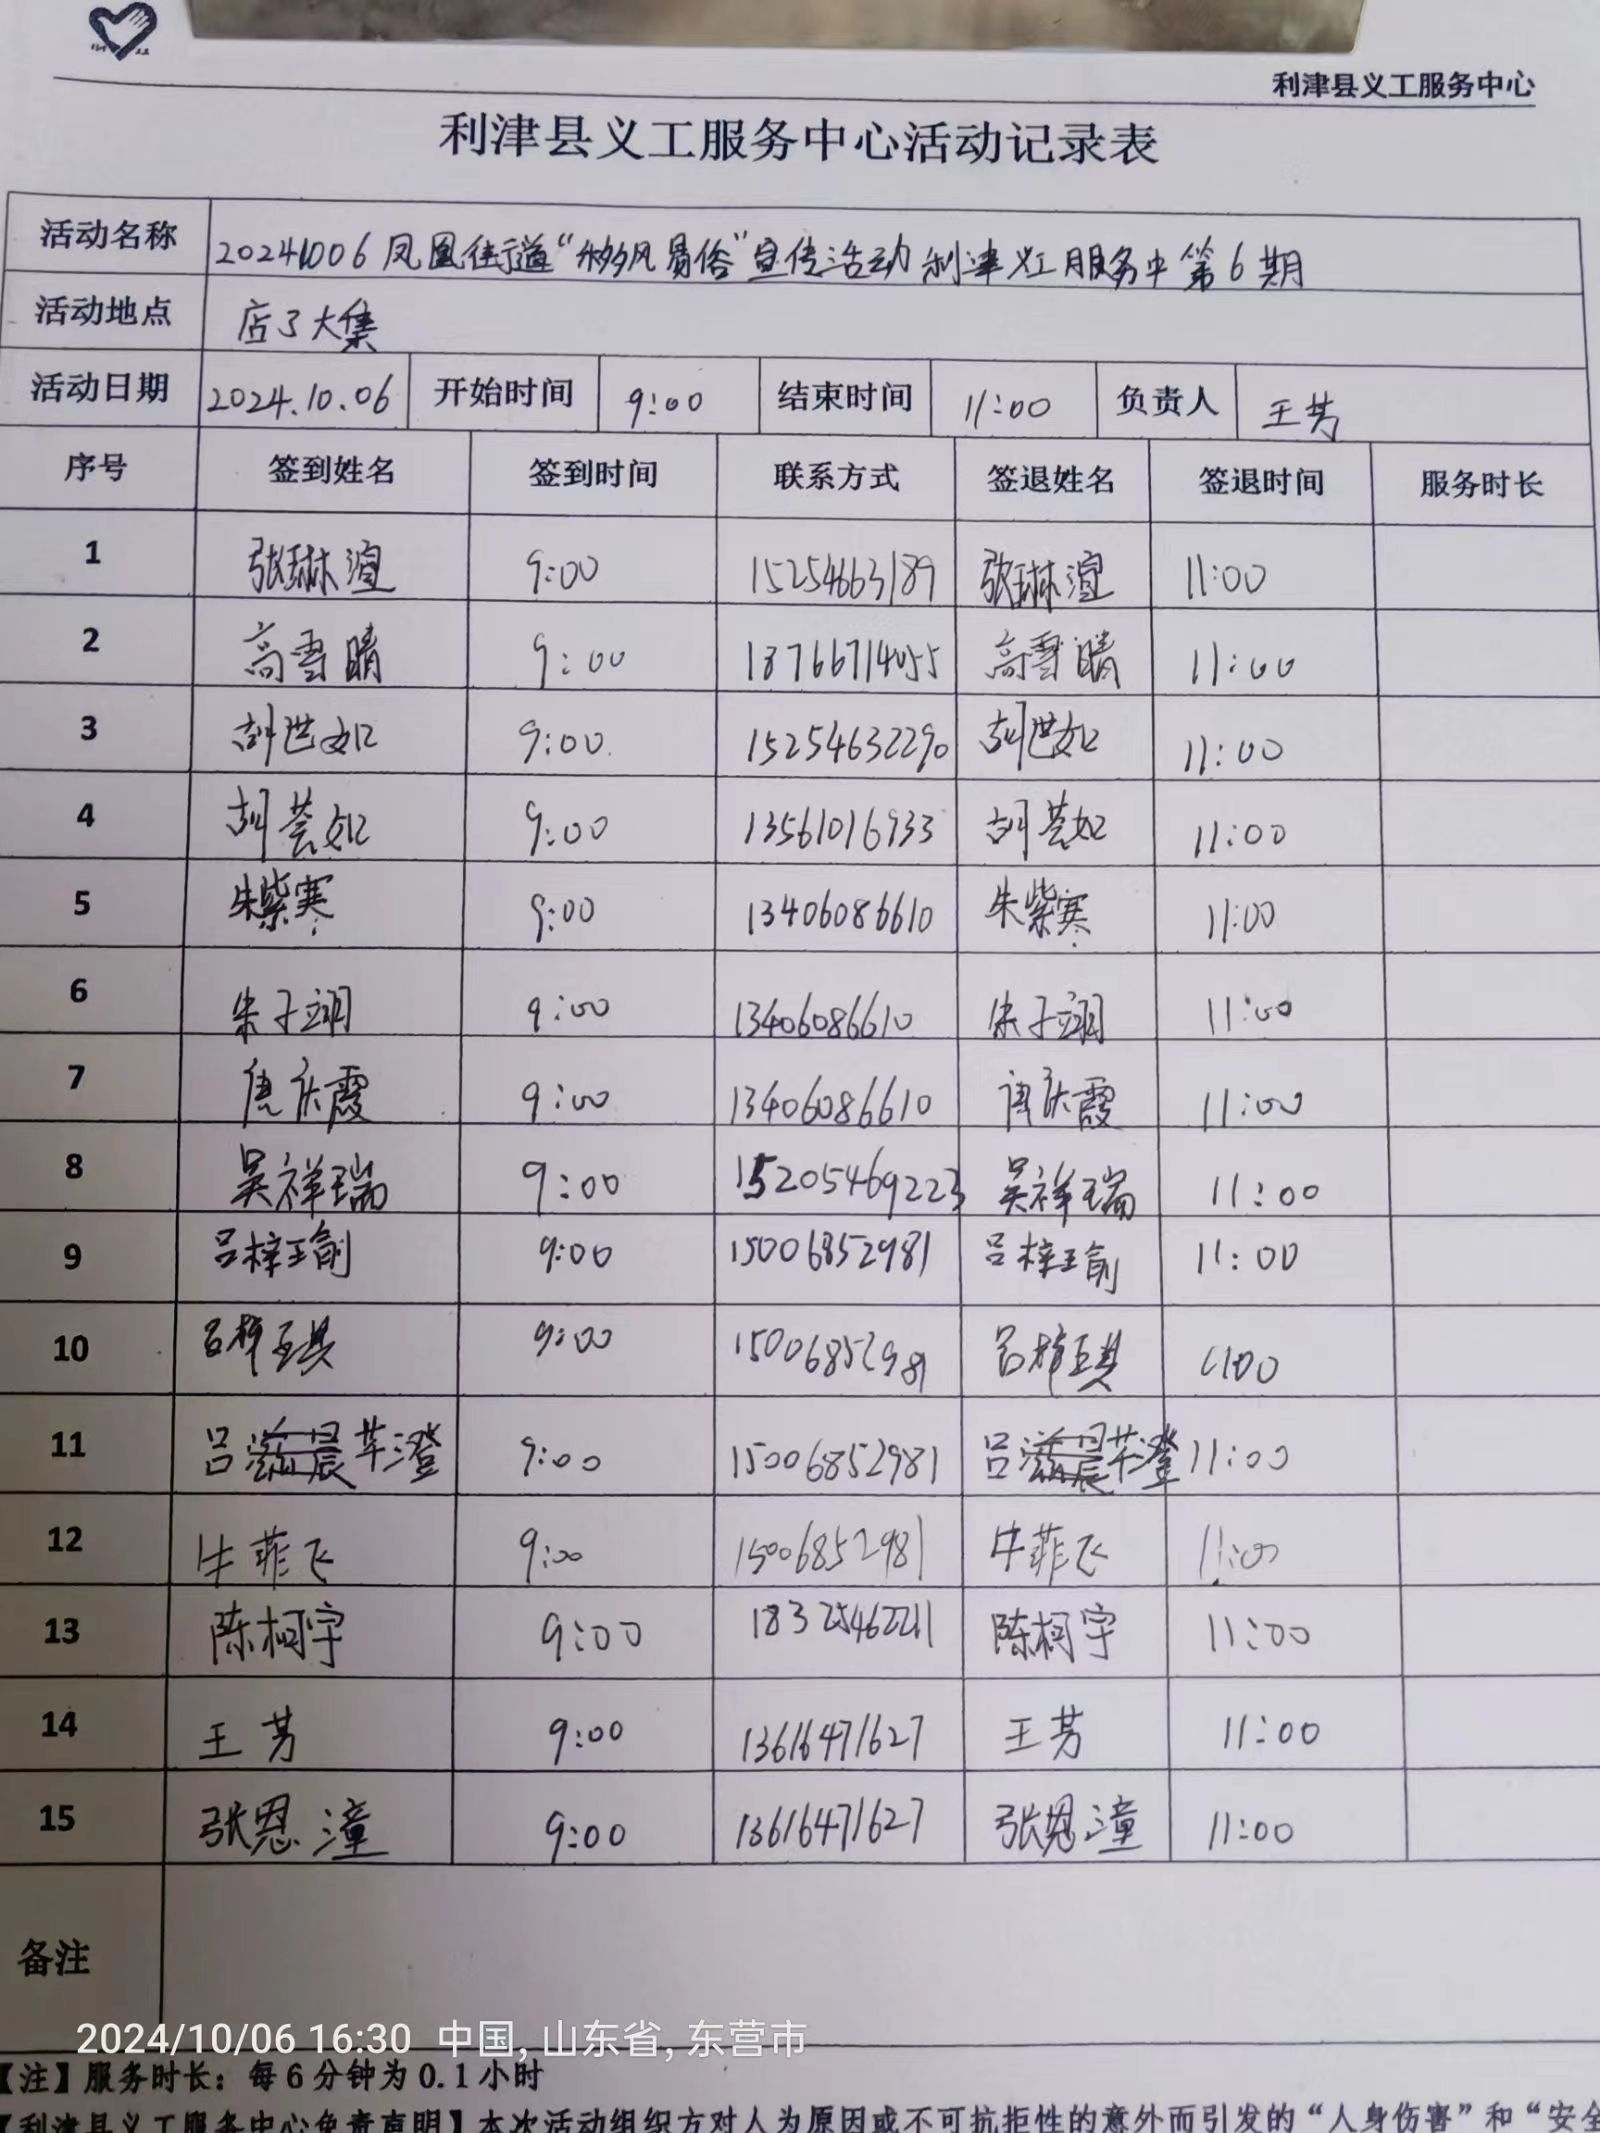 利津县义工服务中心
利津县义工服务中心活动记录表
活动名称 20241006凤凰街道“移风易俗”宣传活动利津义工服务中第6期
活动地点 店子大集
活动日期 2024.10.06 开始时间 9:00 结束时间 11:00 负责人 王芳
序号 签到姓名 签到时间 联系方式 签退姓名 签退时间 服务时长
1 张琳渲 9:00 15254663189 张琳渲 11:00
2 高雪晴 9:00 18766714055 高雪晴 11:00
3 胡世如 9:00 15254632290 胡世如 11:00
4 胡芸如 9:00 13561016933 胡芸如 11:00
5 朱紫寒 9:00 13406086610 朱紫寒 11:00
6 朱子翊 9:00 13406086610 朱子翊 11:00
7 唐庆霞 9:00 13406086610 唐庆霞 11:00
8 吴祥瑞 9:00 15205469223 吴祥瑞 11:00
9 吕梓瑜 9:00 15006852981 吕梓瑜 11:00
10 吕梓琪 9:00 15006852981 吕梓琪 11:00
11 吕芊澄 9:00 15006852981 吕芊澄 11:00
12 牛菲飞 9:00 15006852981 牛菲飞 11:00
13 陈柯宇 9:00 18325462211 陈柯宇 11:00
14 王芳 9:00 13616471627 王芳 11:00
15 张恩潼 9:00 13616471627 张恩潼 11:00
备注
2024/10/06 16:30 中国, 山东省, 东营市
【注】服务时长：每6分钟为0.1小时
【利津县义工服务中心免责声明】本次活动组织方对人为原因或不可抗拒性的意外而引发的“人身伤害”和“安全